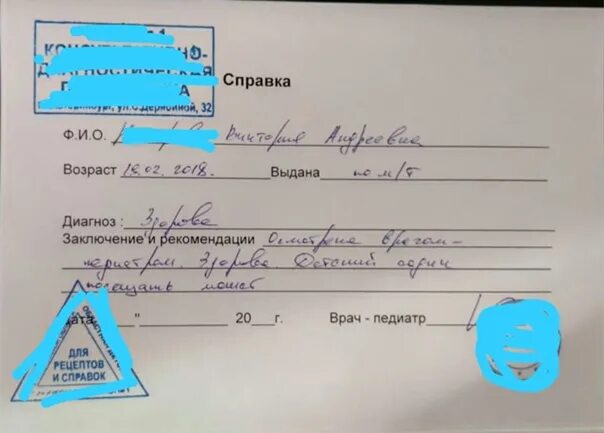 КОНСУЛЬТАТИВНО-
ДИАГНОСТИЧЕСКАЯ
ул. С.Дерябиной, 32
Справка
Ф.И.О. Виктория Андреевна
Возраст 19.02.2018. Выдана по м/т
Диагноз : Здорова
Заключение и рекомендации Осмотрена врачом-
педиатром. Здорова. Детский садик
посещать может
Дата " 20 г. Врач - педиатр
ДЛЯ
РЕЦЕПТОВ
И СПРАВОК